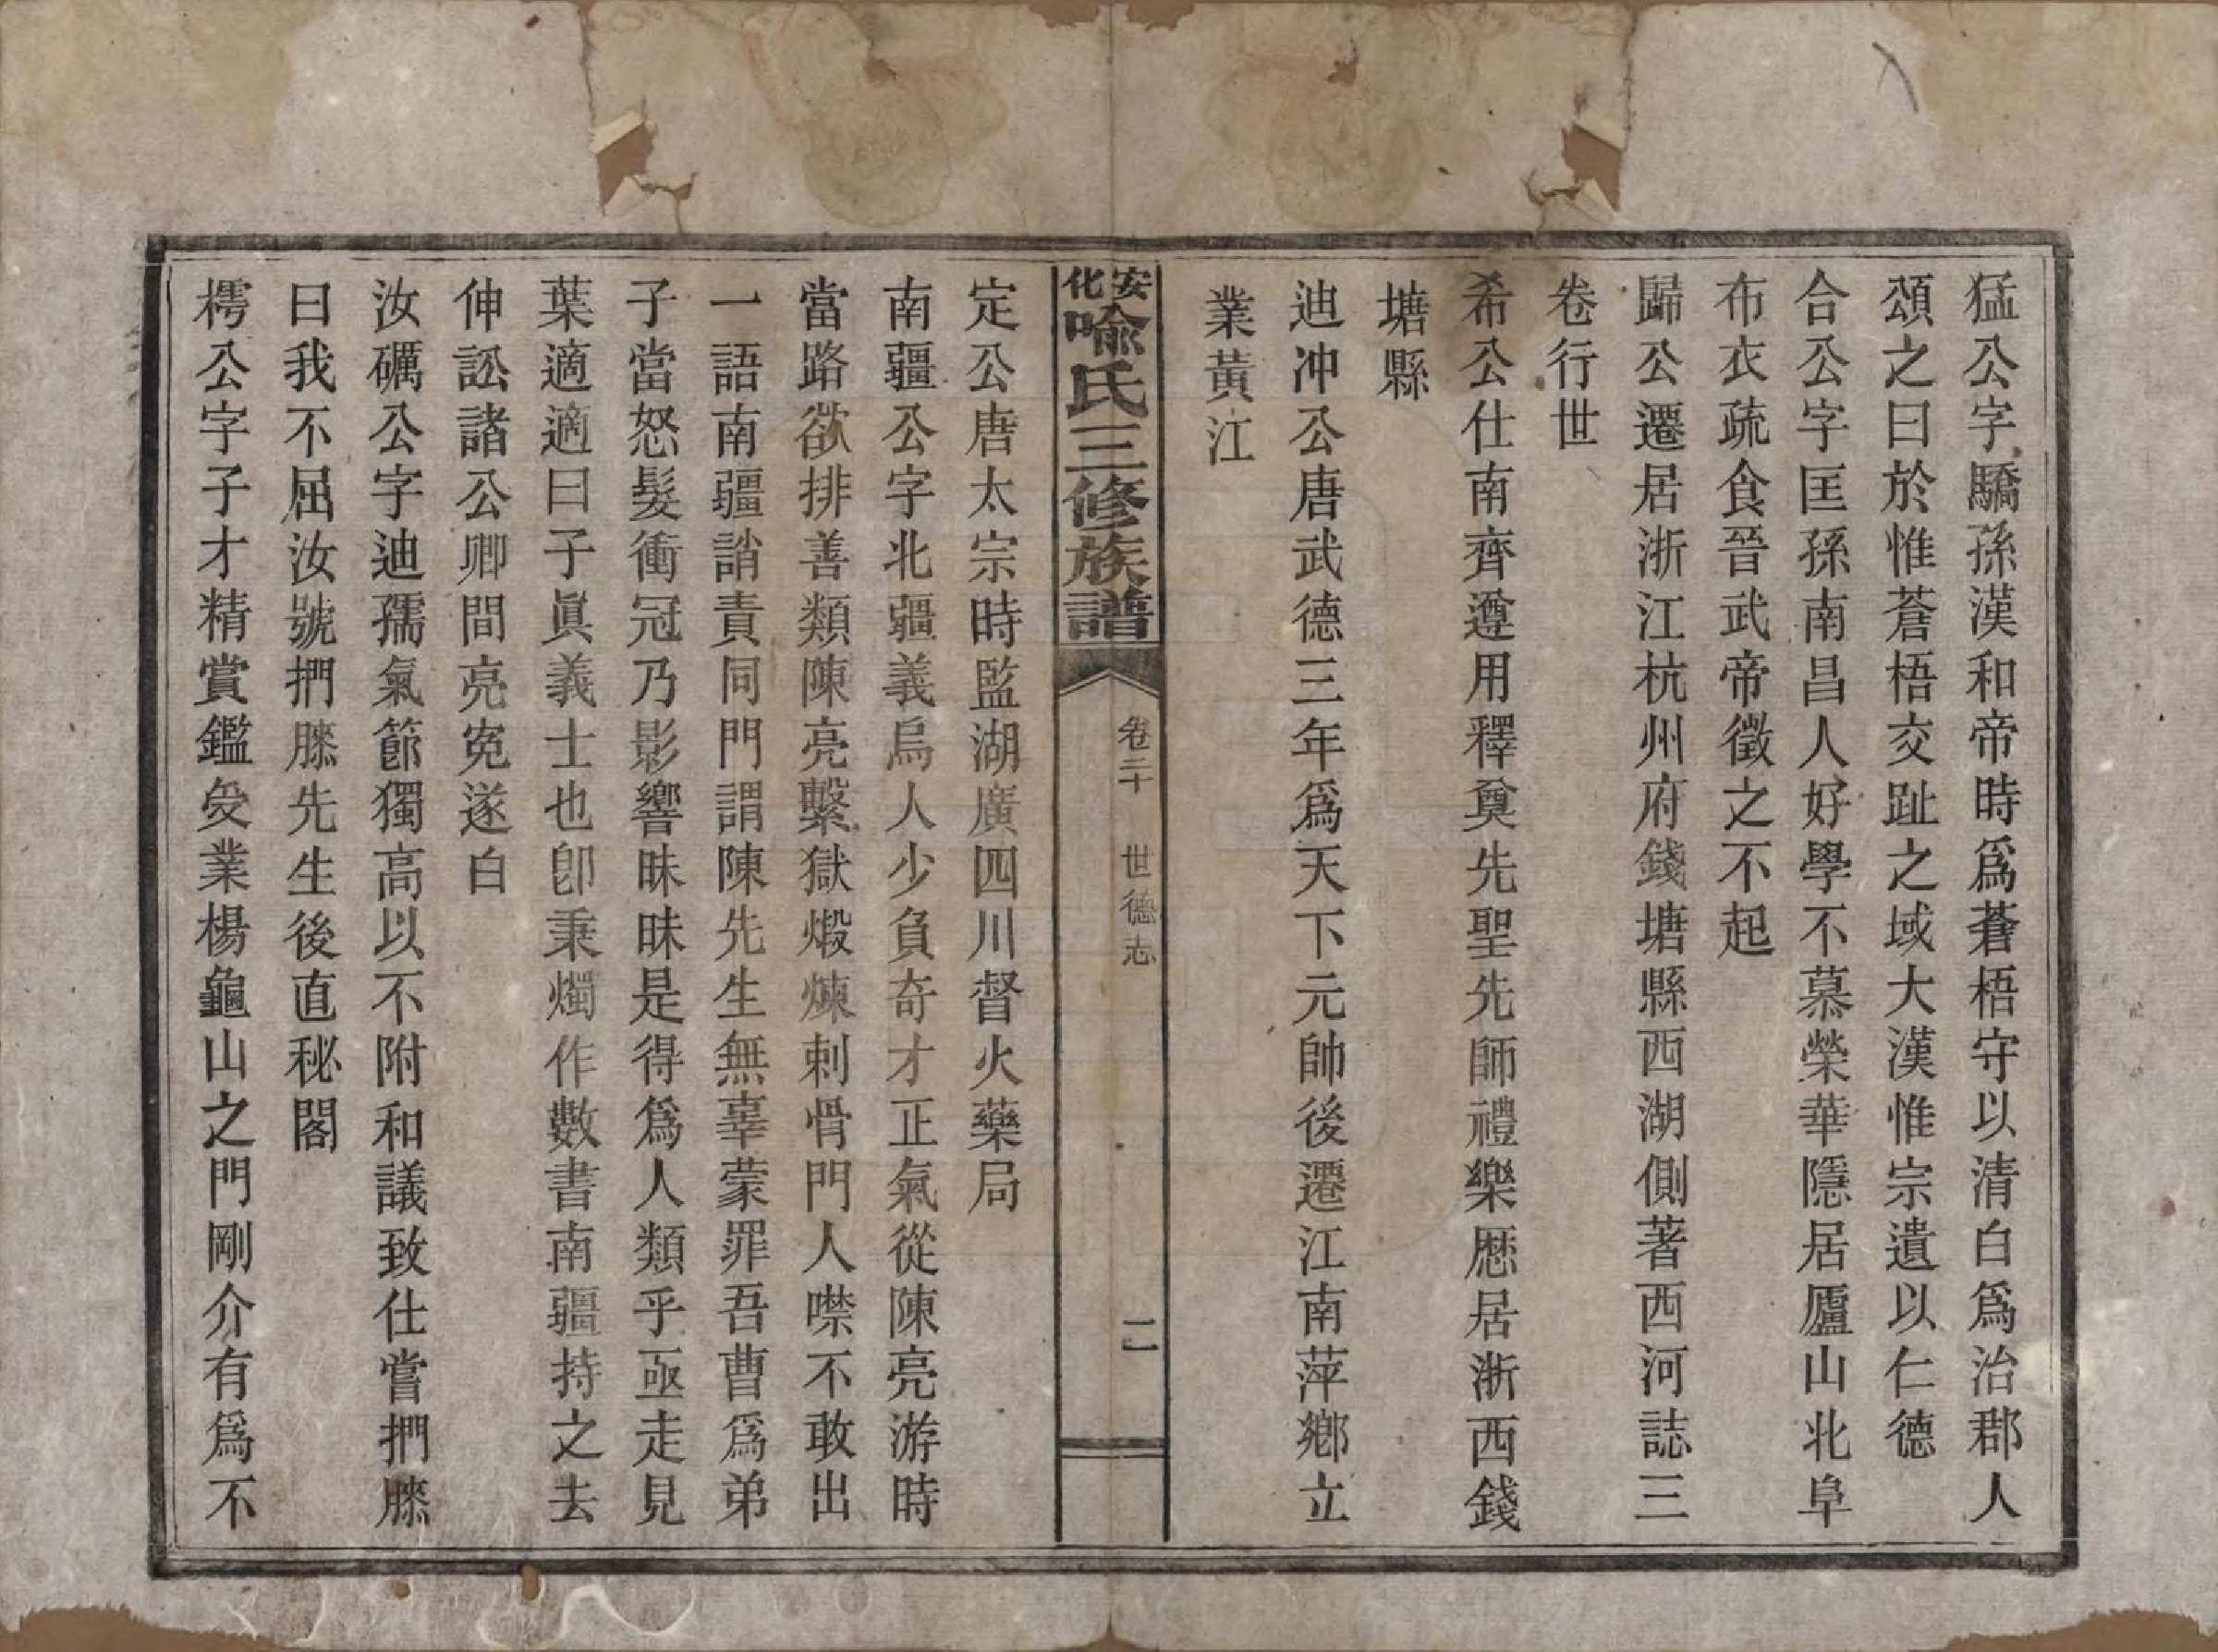 猛公字驕孫漢和帝時爲蒼梧守以清白爲治郡人
頌之曰於惟蒼梧交趾之域大漢惟宗遺以仁德
合公字匡孫南昌人好學不慕榮華隱居廬山北阜
布衣疏食晉武帝徵之不起
歸公遷居浙江杭州府錢塘縣西湖側著西河誌三
卷行世
希公仕南齊遵用釋奠先聖先師禮樂歷居浙西錢
塘縣
迪冲公唐武德三年爲天下元帥後遷江南萍鄉立
業黃江
安化喩氏三修族譜
卷二十 世德志
二
定公唐太宗時監湖廣四川督火藥局
南疆公字北疆義烏人少負奇才正氣從陳亮游時
當路欲排善類陳亮繫獄煅煉刺骨門人噤不敢出
一語南疆誚責同門謂陳先生無辜蒙罪吾曹爲弟
子當怒髮衝冠乃影響昧昧是得爲人類乎亟走見
葉適適曰子眞義士也卽秉燭作數書南疆持之去
伸訟諸公卿間亮寃遂白
汝礪公字迪孺氣節獨高以不附和議致仕嘗捫膝
曰我不屈汝號捫膝先生後直秘閣
樗公字子才精賞鑑受業楊龜山之門剛介有爲不